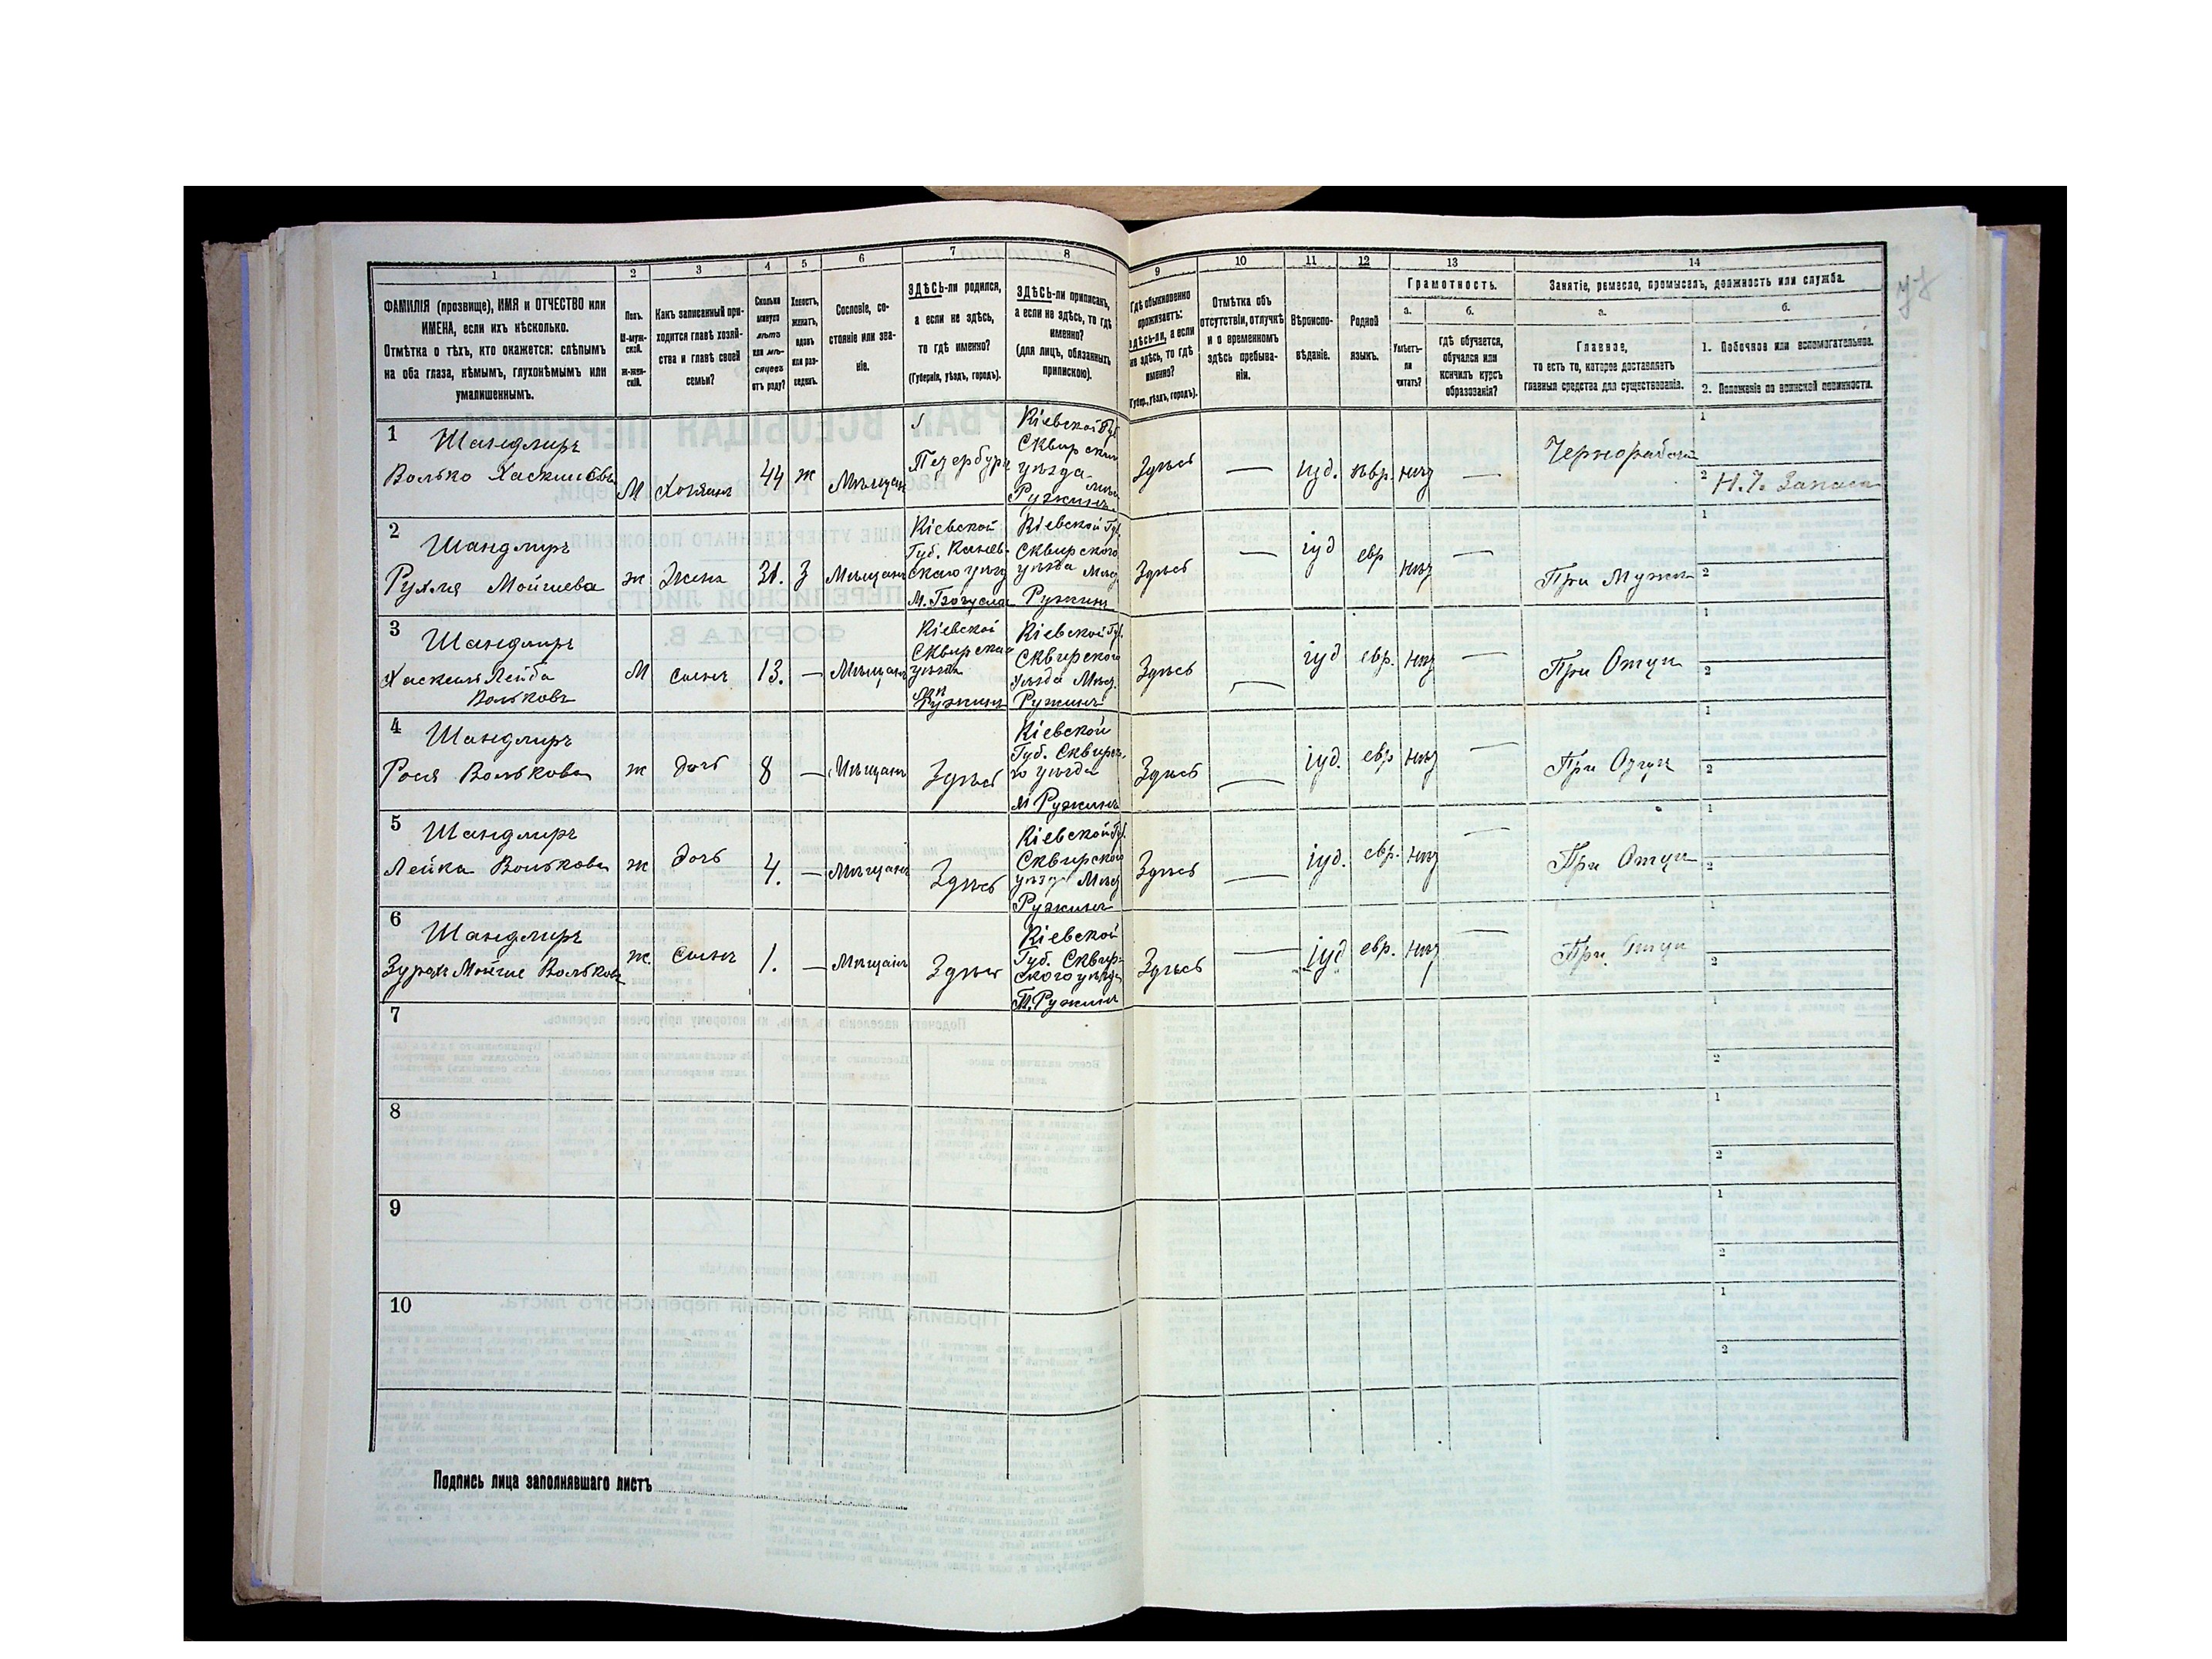 1
2
3
4
5
6
7
8
9
10
11
12
13
14
ФАМИЛІЯ (прозвище), ИМЯ и ОТЧЕСТВО или
ИМЕНА, если ихъ нѣсколько.
Отмѣтка о тѣхъ, кто окажется: слѣпымъ
на оба глаза, нѣмымъ, глухонѣмымъ или
умалишеннымъ.
Полъ.
М-муж-
ской.
Ж-жен-
скій.
Какъ записанный при-
ходится главѣ хозяй-
ства и главѣ своей
семьи?
Сколько
минуло
лѣтъ
или мѣ-
сяцевъ
отъ роду?
Холостъ,
женатъ,
вдовъ
или раз-
веденъ.
Сословіе, со-
стояніе или зва-
ніе.
ЗДѢСЬ-ли родился,
а если не здѣсь,
то гдѣ именно?
(Губернія, уѣздъ, городъ).
ЗДѢСЬ-ли приписанъ,
а если не здѣсь, то гдѣ
именно?
(для лицъ, обязанныхъ
припискою).
Гдѣ обыкновенно
проживаетъ:
здѣсь-ли, а если
не здѣсь, то гдѣ
именно?
(Губер., уѣздъ, городъ).
Отмѣтка объ
отсутствіи, отлучкѣ
и о временномъ
здѣсь пребыва-
ніи.
Вѣроиспо-
вѣданіе.
Родной
языкъ.
Грамотность.
а.
б.
Умѣетъ-
ли
читать?
гдѣ обучается,
обучался или
кончилъ курсъ
образованія?
Занятіе, ремесло, промыселъ, должность или служба.
а.
б.
Главное,
то есть то, которое доставляетъ
главныя средства для существованія.
1. Побочное или вспомогательное.
2. Положеніе по воинской повинности.
1 Шандлиръ
Волько
М
Хозяинъ
44
ж
Мѣщан
Кіевской Губ
Сквирскаго
уѣзда
Ружинъ
Здѣсь
—
іуд.
евр.
—
Чернорабочій
1
2
2 Шандлиръ
Рухля Мойшева
ж
Жена
31.
З
Мѣщанъ
Кіевской
Губ. Канев-
скаго уѣзд
М. Богусла
Кіевской Губ
Сквирского
уѣзда Мѣс
Ружинъ
Здѣсь
—
іуд
евр
—
При Мужѣ
1
2
3 Шандлиръ
Хаскель Лейба
Вольковъ
М
сынъ
13.
—
Мѣщанъ
Кіевской
Сквирска
уѣзда
Ружинъ
Кіевской Губ.
Сквирского
уѣзда Мѣс.
Ружинъ
Здѣсь
—
іуд
евр.
—
При Отцѣ
1
2
4 Шандлиръ
Рося Волькова
ж
дочь
8
—
Мѣщанъ
Здѣсь
Кіевской
Губ. Сквирск.
го уѣзда
М Ружинъ
Здѣсь
—
іуд.
евр
—
При Отцѣ
1
2
5 Шандлиръ
Лейка Волькова
ж
дочь
4.
—
Мѣщанъ
Здѣсь
Кіевской Губ.
Сквирского
уѣзда Мѣс
Ружинъ
Здѣсь
—
іуд.
евр.
—
При Отцѣ
1
2
6 Шандлиръ
Мойше Вольковъ
ж.
сынъ
1.
—
Мѣщанъ
Здѣсь
Кіевской
Губ. Сквир-
ского уѣзда
М. Ружинъ
Здѣсь
—
іуд
евр.
—
При Отцѣ
1
2
7
1
2
8
1
2
9
1
2
10
1
2
Подпись лица заполнявшаго листъ